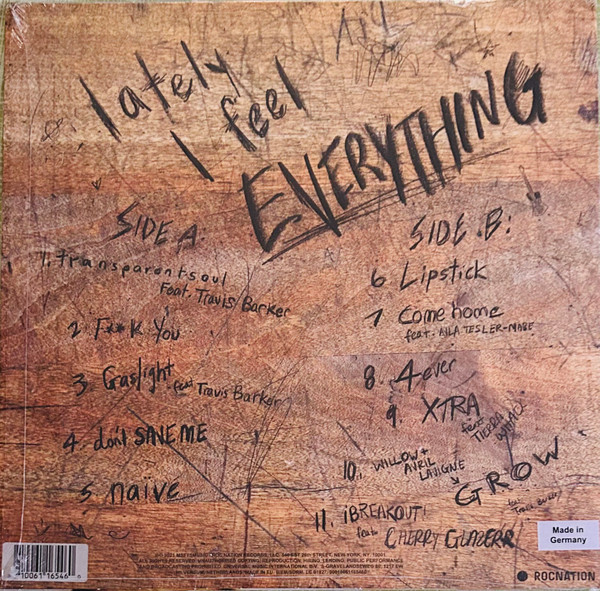 lately
I feel
EVERYTHING
SIDE A
1. transparentsoul
Feat. Travis Barker
2 F**K You
3. Gaslight feat Travis Barker
4. don't SAVE ME
5. naïve
SIDE B:
6 Lipstick
7 Come home
feat. AYLA TESLER-MABE
8. 4ever
9. XTRA
feat
TIERRA
WHACK
10. WILLOW +
AVRIL
LAVIGNE
GROW
feat. Travis Barker
11. ¡BREAKOUT!
feat. CHERRY GLAZERR
Made in
Germany
ROCNATION